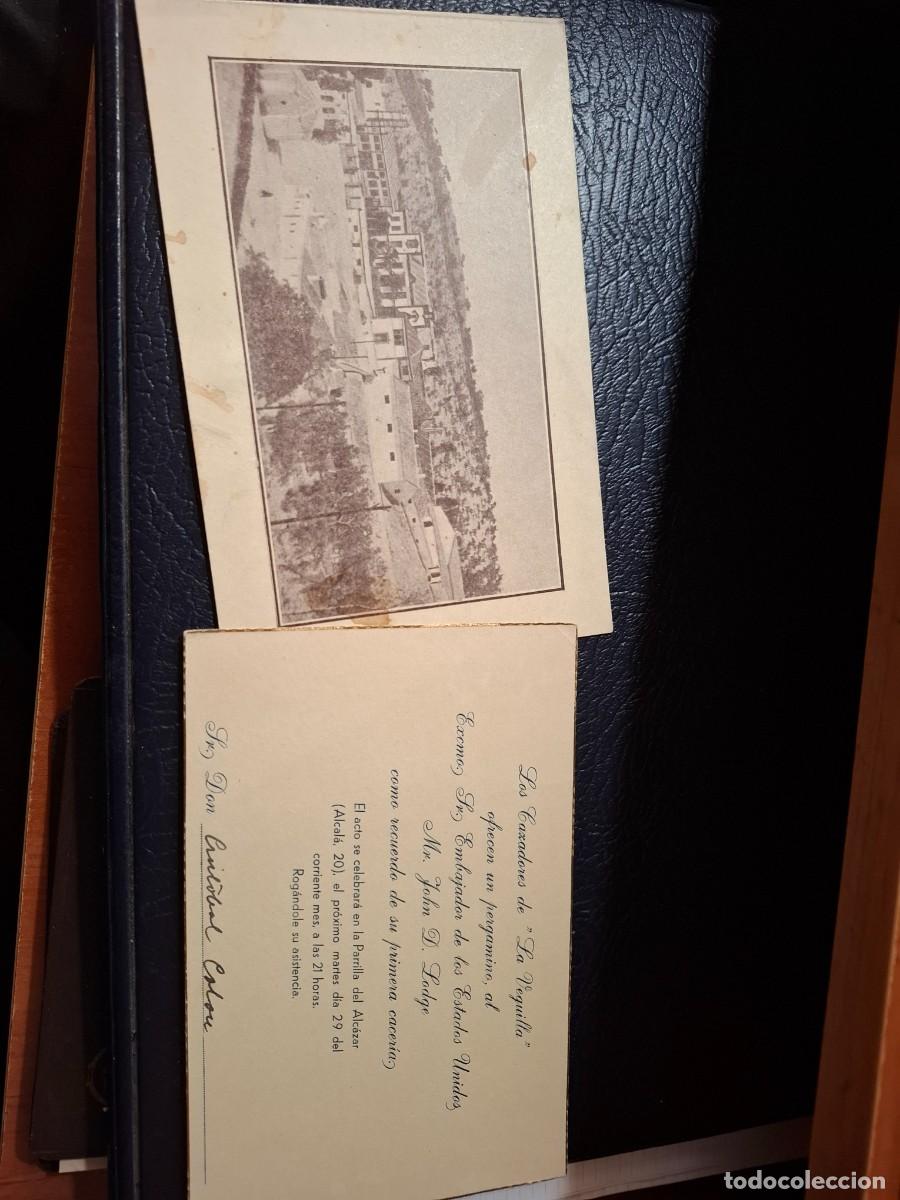 Los Cazadores de "La Veguilla"
ofrecen un pergamino, al
Excmo. Sr. Embajador de los Estados Unidos
Mr. John D. Lodge
como recuerdo de su primera cacería
El acto se celebrará en la Parrilla del Alcázar
(Alcalá, 20), el próximo martes dia 29 del
corriente mes, a las 21 horas.
Rogándole su asistencia.
Sr. Don Cristóbal Colon
todocoleccion